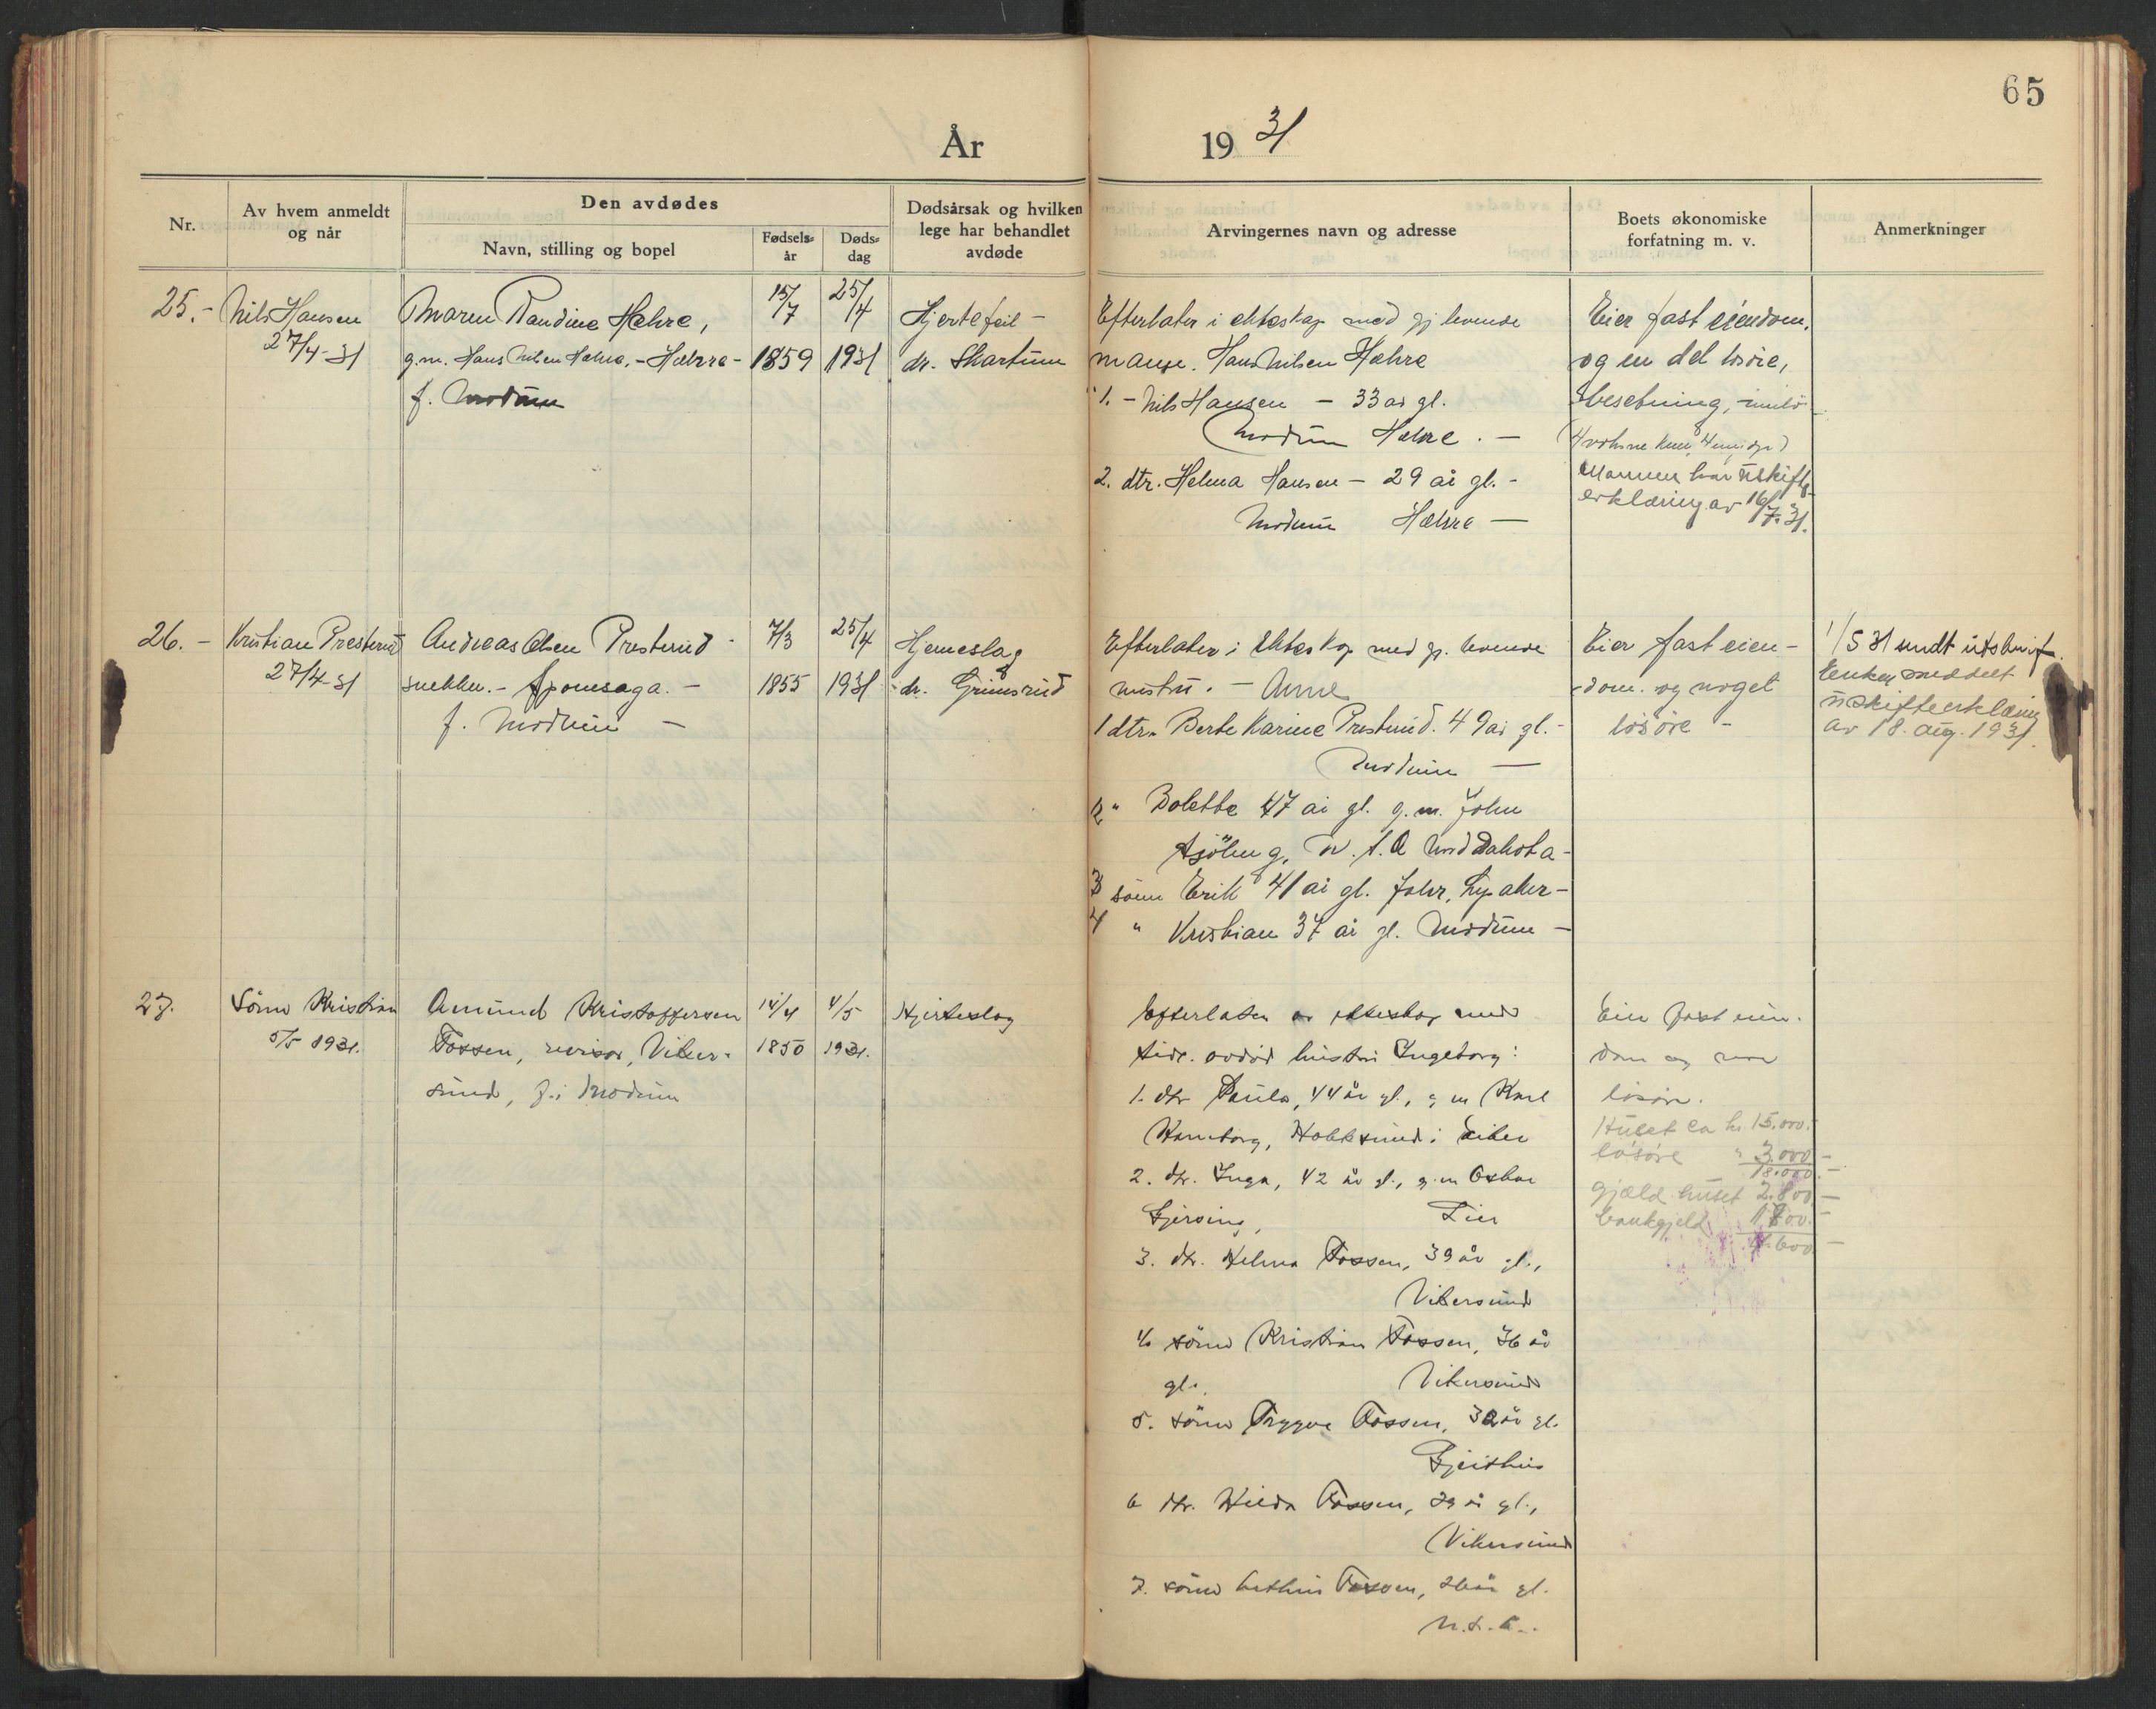 65
År 1931
Nr.
Av hvem anmeldt og når
Den avdødes
Navn, stilling og bopel
Fødselsår
Dødsdag
Dødsårsak og hvilken lege har behandlet avdøde
Arvingernes navn og adresse
Boets økonomiske forfatning m. v.
Anmerkninger
25.- Nils Hansen
27/4-31
Maren Randine Hæhre,
g.m. Hans Nilsen Hæhre, - Hæhre -
f. Modum
15/7
1859
25/4
1931
Hjertefeil -
dr. Skartum
Efterlater i ekteskap med gj levende
mann. Hans Nilsen Hæhre
1. - Nils Hansen - 33 år gl.
Modum Hæhre. -
2. dtr. Helma Hansen - 29 år gl. -
Modum Hæhre -
Eier fast eiendom,
og en del løsøre,
besetning,
Mannen har uskifte
erklæring av 16/7. 31.
26. - Kristian Presterud
27/4-31
Andreas Olsen Presterud -
snekker. - Sponesaga. -
f. Modum -
7/3
1855
25/4
1931
Hjerneslag
dr. Grimsrud
Efterlater i Ekteskap med gj. levende
hustru. - Anne
1 dtr. Berte Karine Presterud. 49 år gl. -
Modum -
2 " Bolette 47 år gl. g.m. John
Sjøberg, N. S. A Nord Dakota -
3 sønn Erik 41 år gl. Lysaker -
4 " Kristian 37 år gl. Modum -
Eier fast eien-
dom. og noget
løsøre -
1/5 31 sendt utskrift.
Enken meddelt
uskifteerklæring
av 18. aug. 1931.
27. Sønn Kristian
5/5 1931.
Amund Kristoffersen
Fossen, revisor, Viker-
sund, f. i Modum
14/4
1850
4/5
1931.
Hjerteslag
Efterlater av ekteskap med
tidl. avdød hustru Ingeborg:
1. dtr Paula, 44 år gl., g m Karl
Hokksund i Eiker
2. dtr. Inga, 42 år gl., g. m Oskar
Gjersing, Lier
3. dtr. Helma Fossen, 39 år gl.,
Vikersund
4. sønn Kristian Fossen, 36 år
gl., Vikersund
5. sønn Trygve Fossen, 32 år gl.
Gjeithus
6 dtr. Hilda Fossen, 29 år gl.,
Vikersund
7. sønn Arthur Fossen, 26 år gl.
U. S. A..
Eier fast eien-
dom og noe
løsøre.
Huset ca kr. 15.000.
løsøre " 3.000 -
18.000. -
gjæld huset 2.800, -
bankgjeld 1.800. -
4.600 -